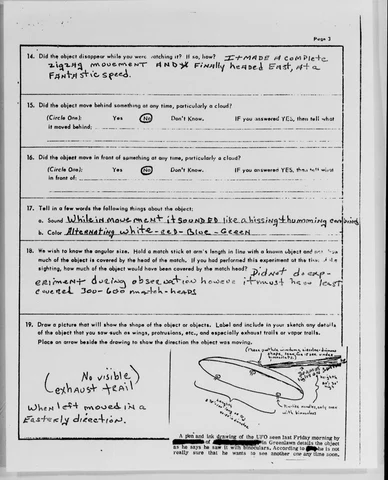 Page 3
14. Did the object disappear while you were watching it? If so, how? IT MADE A COMPLETE
ZIGZAG MOVEMENT AND FINALLY headed EAST, AT A
FANTASTIC SPEED.
15. Did the object move behind something at any time, particularly a cloud?
(Circle One): Yes No Don't Know. IF you answered YES, then tell what
it moved behind:
16. Did the object move in front of something at any time, particularly a cloud?
(Circle One): Yes No Don't Know. IF you answered YES, then tell what
in front of:
17. Tell in a few words the following things about the object:
a. Sound While in movement it SOUNDED like a hissing + humming
b. Color Alternating white-red-Blue-Green
18. We wish to know the angular size. Hold a match stick at arm's length in line with a known object and
much of the object is covered by the head of the match. If you had performed this experiment at the
sighting, how much of the object would have been covered by the match head? Did not do exp-
eriment during observation however it must have least
covered 300-600 match-heads
19. Draw a picture that will show the shape of the object or objects. Label and include in your sketch any details
of the object that you saw such as wings, protrusions, etc., and especially exhaust trails or vapor trails.
Place an arrow beside the drawing to show the direction the object was moving.
(No visible
exhaust trail)
When left moved in a
Easterly direction.
A pen and ink drawing of the UFO seen last Friday morning by
in Greenlawn details the object
as he says he saw it with binoculars. According to he is not
really sure that he wants to see another one any time soon.